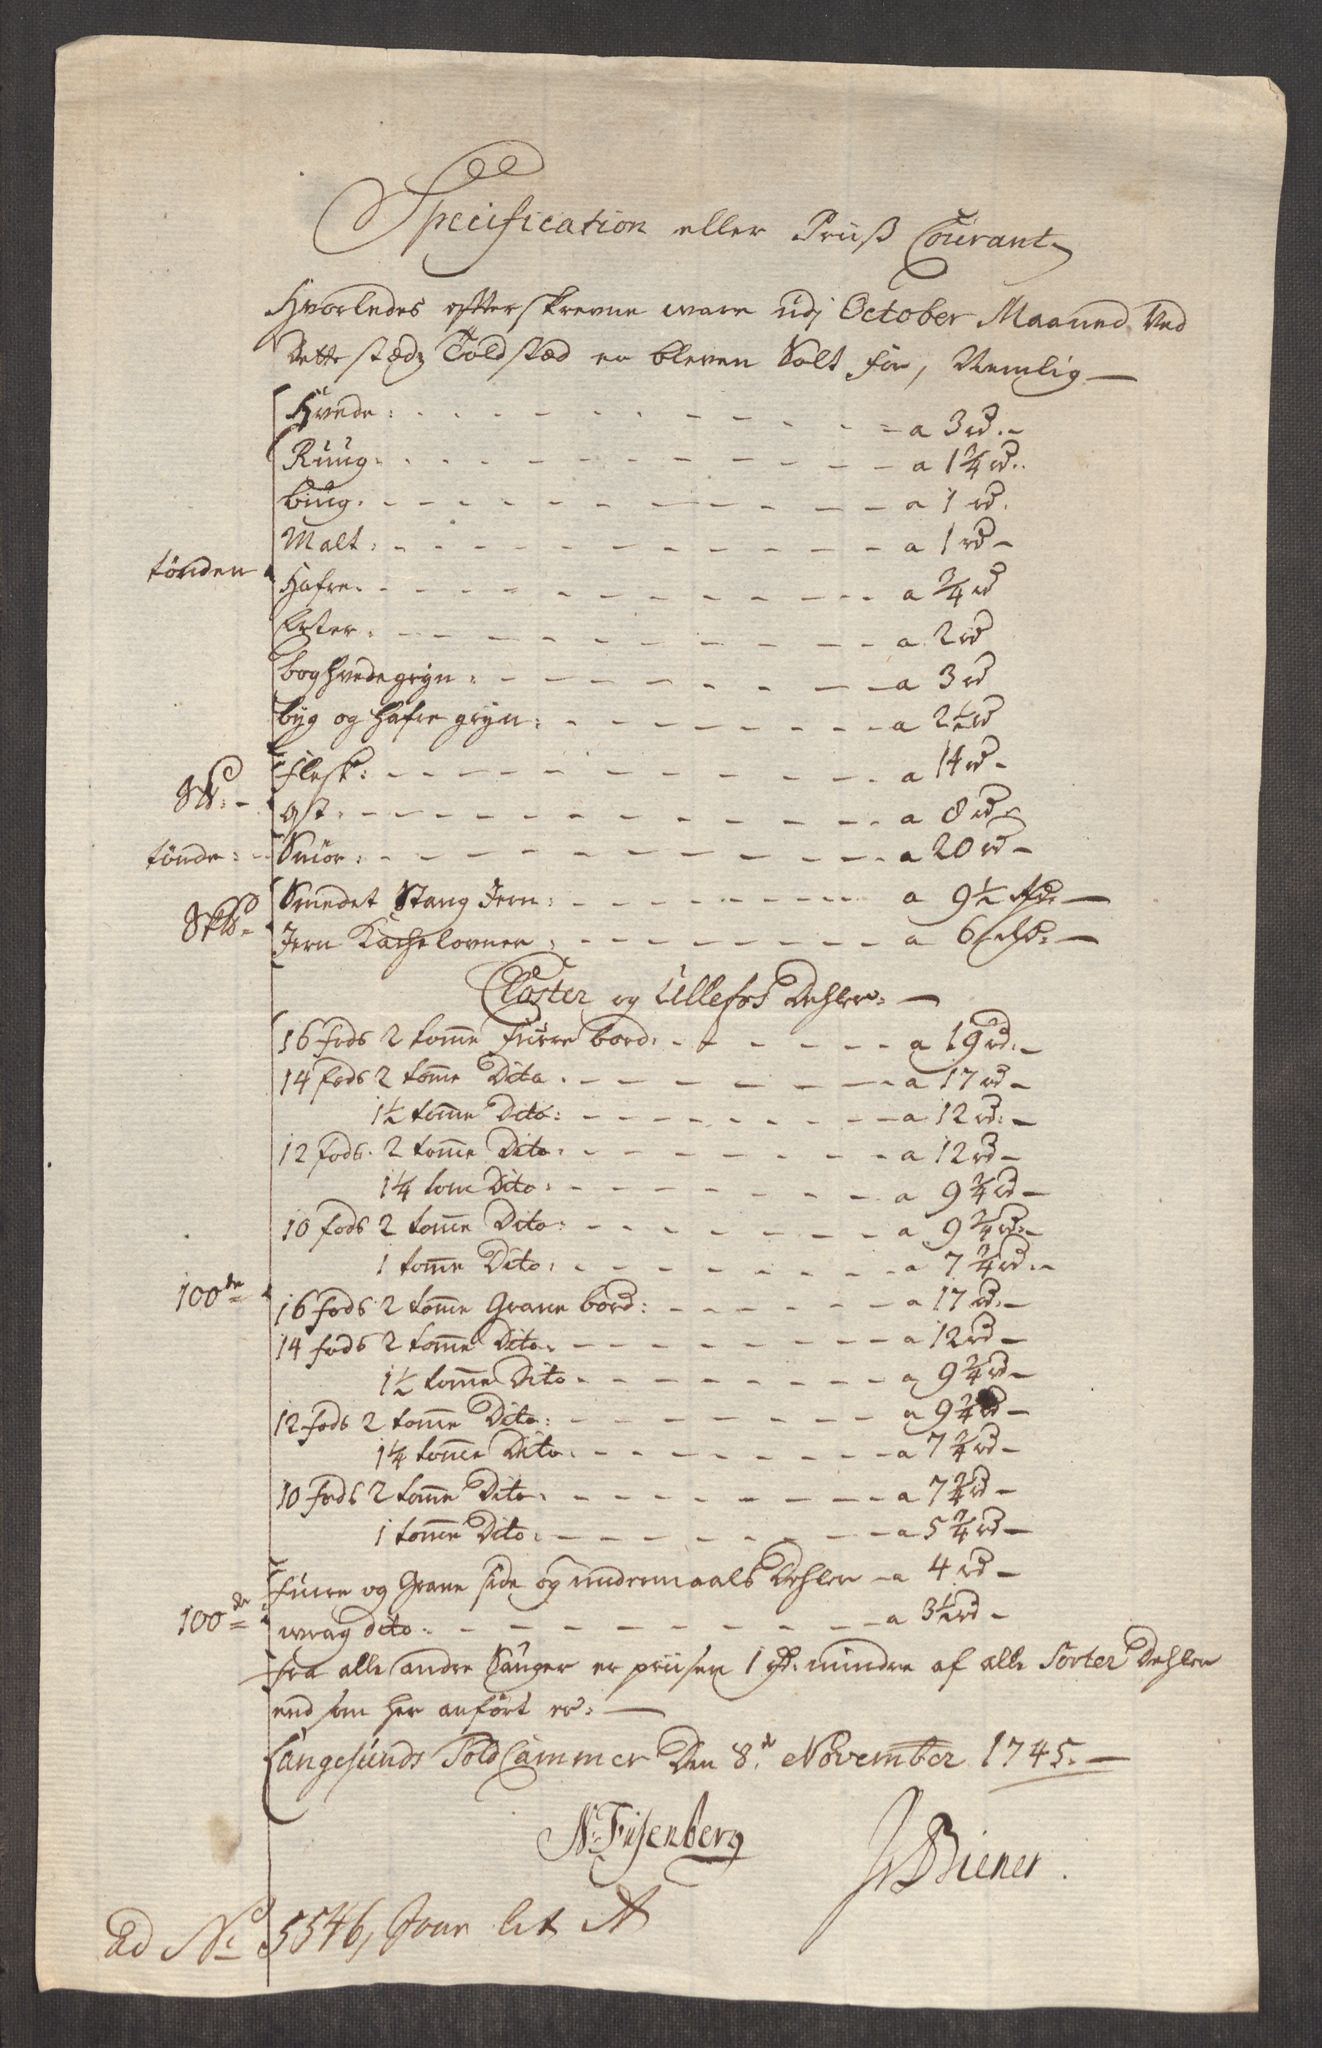 Specification eller Priiß Courant
Hvorledes efterskrevne ware udj October Maaned Ved
Dette stædz Toldstæd er bleven Solt for, Nemlig
Hvede a 3 rd.
Rüug a 1 3/4 rd.
büug a 1 rd.
Malt a 1 rd
tönden
Hafre a 3/4 rd
Erter a 2 rd
boghvedegryn a 3 rd
byg og hafre gryn a 2 1/2 rd
Flesk a 14 rd
S℔:
ost a 8 rd
tönde: Smör a 20 rd
Smedet Stang Jern a 9 1/2 rd
Sk℔
Jern Kachelovner a 6 rd
Closter og Ullefos Dehler
16 fods 2 tomme furre bord a 19 rd.
14 fods 2 tomme Dito a 17 rd
1 1/2 tomme Dito a 12 rd.
12 fods 2 tomme Dito a 12 rd
1 1/4 tome Dito a 9 3/4 rd
10 fods 2 tomme Dito a 9 3/4 rd.
1 tomme Dito a 7 3/4 rd.
100de
16 fods 2 tomme Grane bord a 17 rd.
14 fods 2 tomme Dito a 12 rd
1 1/2 tomme Dito a 9 3/4 rd
12 fods 2 tomme Dito a 9 3/4 rd
1 1/4 tomme Dito a 7 3/4 rd
10 fods 2 tomme Dito a 7 3/4 rd
1 tomme Dito a 5 3/4 rd
fürre og Grane side og undermaals Dehler a 4 rd
100de wrag dito a 3 1/2 rd
fra alle andre Sauger er priisen 1 rd. mindre af alle Sorter Dehler
end som her anfört er:
Langesunds Told Cammer Den 8de November 1745.
N: Fisenberg
J Biener.
Ad No 5546, Jour lit A